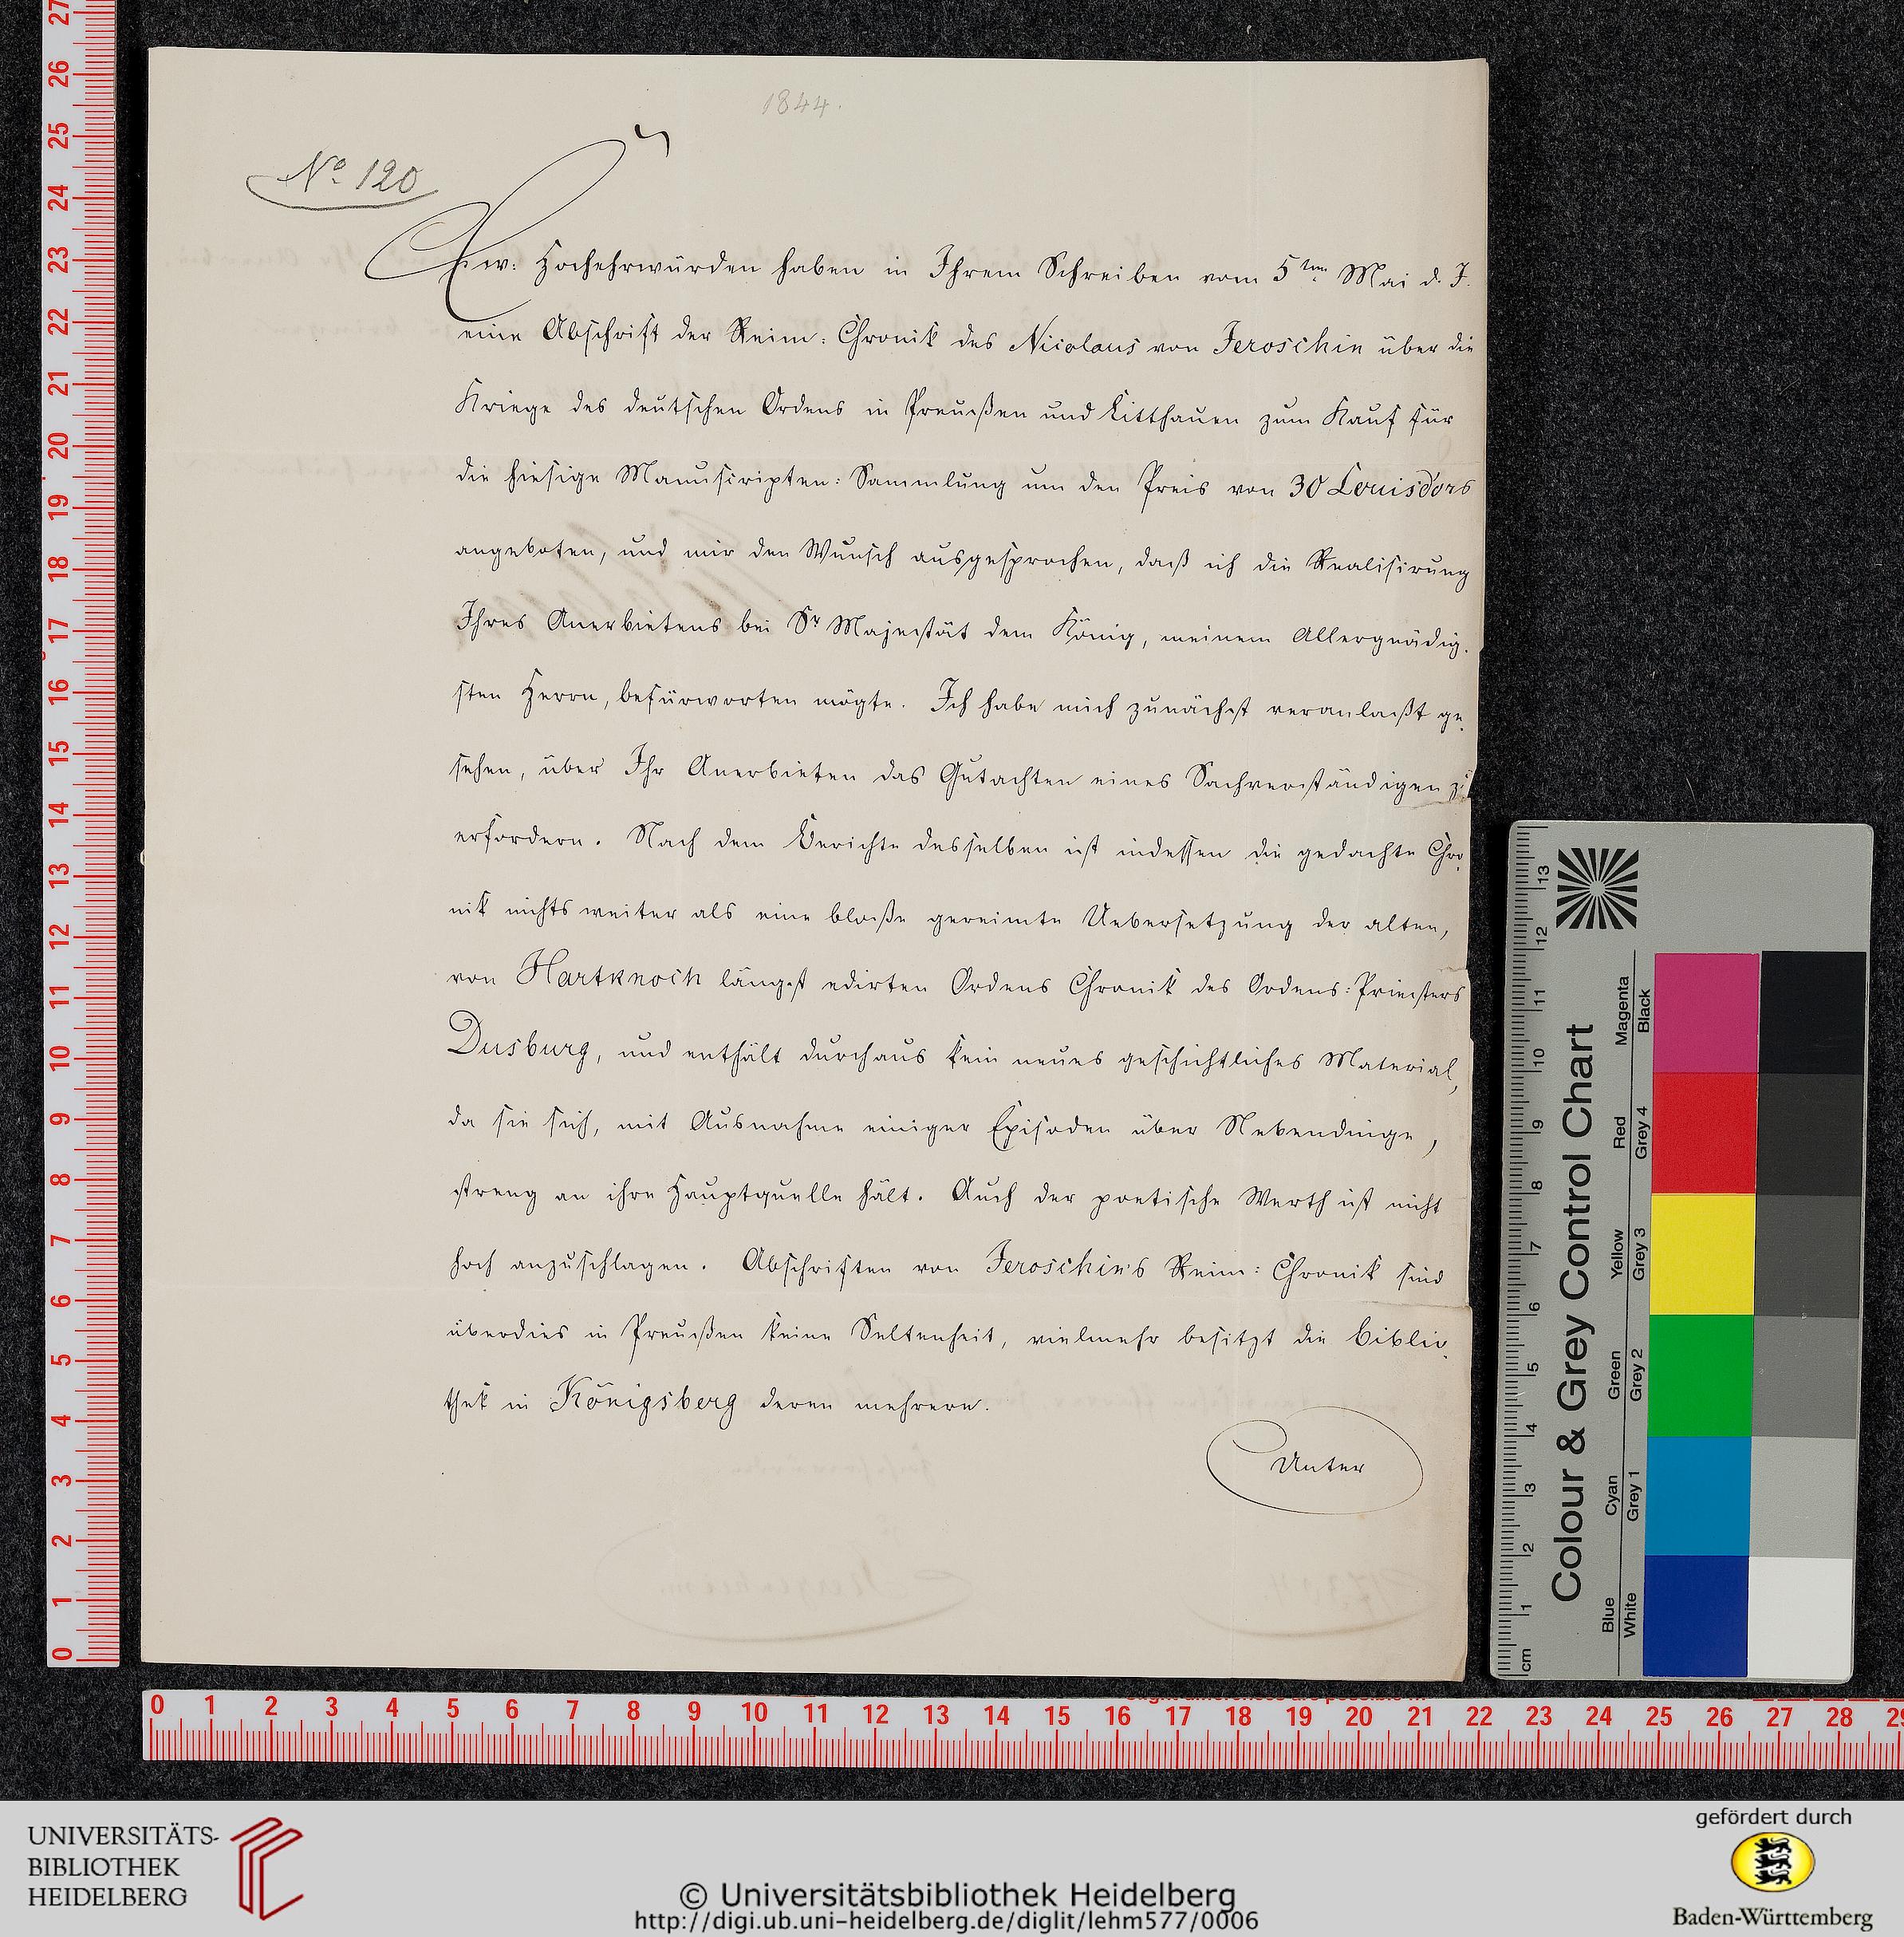 1844.
No 120
Ew: Hochehrwürden haben in Ihrem Schreiben vom 5ten Mai d. J.
eine Abschrift der Reim: Chronik des Nicolaus von Jeroschin über die
Kriege des deutschen Ordens in Preußen und Litthauen zum Kauf für
die hiesige Manuscripten: Sammlung um den Preis von 30 Louisdors
angeboten, und mir den Wunsch ausgesprochen, daß ich die Realisirung
Ihres Anerbietens bei Sr Majestät dem König, meinem Allergnädig-
sten Herrn, befürworten mögte. Ich habe mich zunächst veranlaßt ge-
sehen, über Ihr Anerbieten das Gutachten eines Sachverständigen zu
erfordern. Nach dem Berichte desselben ist indessen die gedachte Chro-
nik nichts weiter als eine bloße gereimte Uebersetzung der alten,
von Hartknoch längst edirten Ordens Chronik des Ordens: Priesters
Dusburg, und enthält durchaus kein neues geschichtliches Material,
da sie sich, mit Ausnahme einiger Episoden über Nebendinge,
streng an ihre Hauptquelle hält. Auch der poetische Werth ist nicht
hoch anzuschlagen. Abschriften von Jeroschin's Reim: Chronik sind
überdies in Preußen keine Seltenheit, vielmehr besitzt die Biblio-
thek in Königsberg deren mehrere.
Unter
27
26
25
24
23
22
21
20
19
18
17
16
15
14
13
12
11
10
9
8
7
6
5
4
3
2
1
0
0 1 2 3 4 5 6 7 8 9 10 11 12 13 14 15 16 17 18 19 20 21 22 23 24 25 26 27 28 29
Colour & Grey Control Chart
Blue Cyan Green Yellow Red Magenta
White Grey 1 Grey 2 Grey 3 Grey 4 Black
cm 1 2 3 4 5 6 7 8 9 10 11 12 13
UNIVERSITÄTS-
BIBLIOTHEK
HEIDELBERG
© Universitätsbibliothek Heidelberg
http://digi.ub.uni-heidelberg.de/diglit/lehm577/0006
gefördert durch
Baden-Württemberg